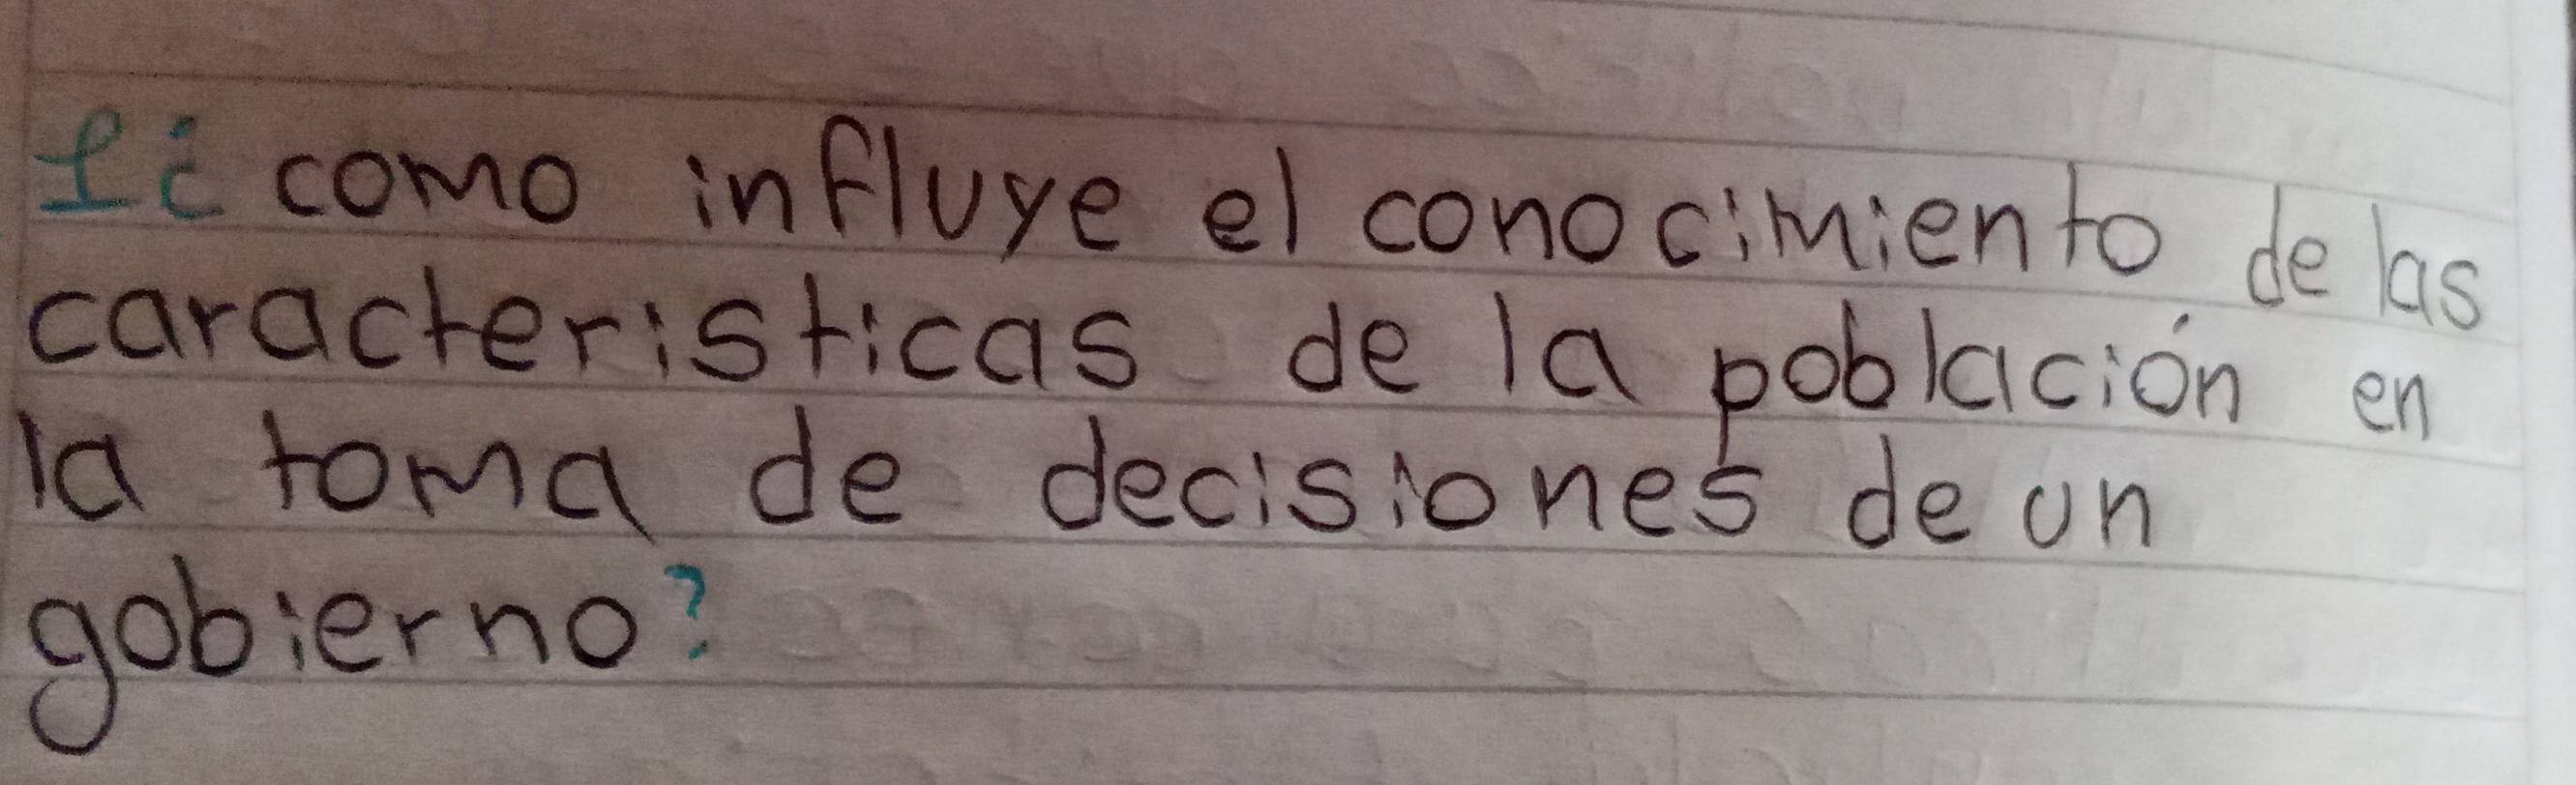 ¿como influye el conocimiento de las
caracteristicas de la población en
la toma de decisiones de un
gobierno?